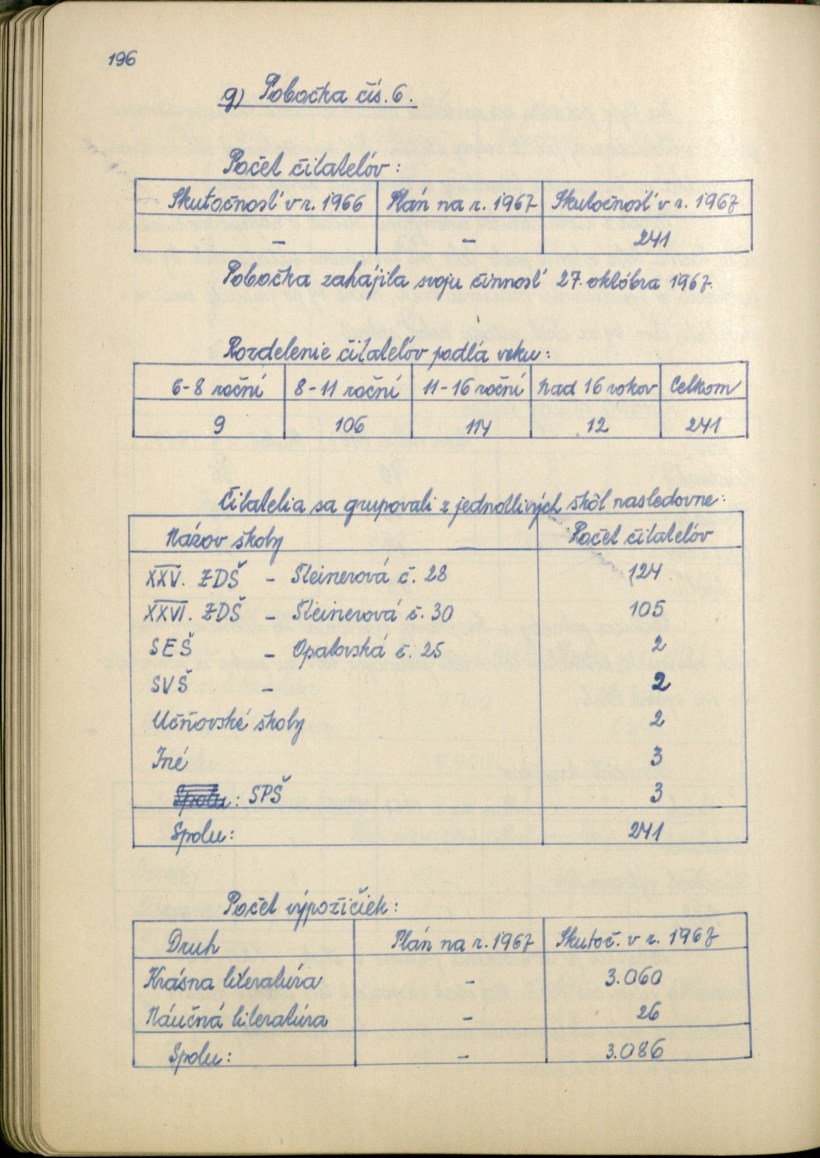 196
g) Pobočka čís. 6.
Počet čitateľov:
Skutočnosť v r. 1966 Plán na r. 1967 Skutočnosť v r. 1967
- - 241
Pobočka zahájila svoju činnosť 27. októbra 1967.
Rozdelenie čitateľov podľa veku:
6-8 roční 8-11 roční 11-16 roční nad 16 rokov Celkom
9 106 114 12 241
Čitatelia sa grupovali z jednotlivých škôl nasledovne:
Názov školy Počet čitateľov
XXV. ZDŠ - Šteinerová č. 28 124
XXVI. ZDŠ - Šteinerová č. 30 105
SEŠ - Opatovská č. 25 2
SVŠ - 2
Učňovské školy 2
Iné 3
Spolu: SPŠ 3
Spolu: 241
Počet výpožičiek:
Druh Plán na r. 1967 Skutoč. v r. 1967
Krásna literatúra - 3.060
Náučná literatúra - 26
Spolu: - 3.086